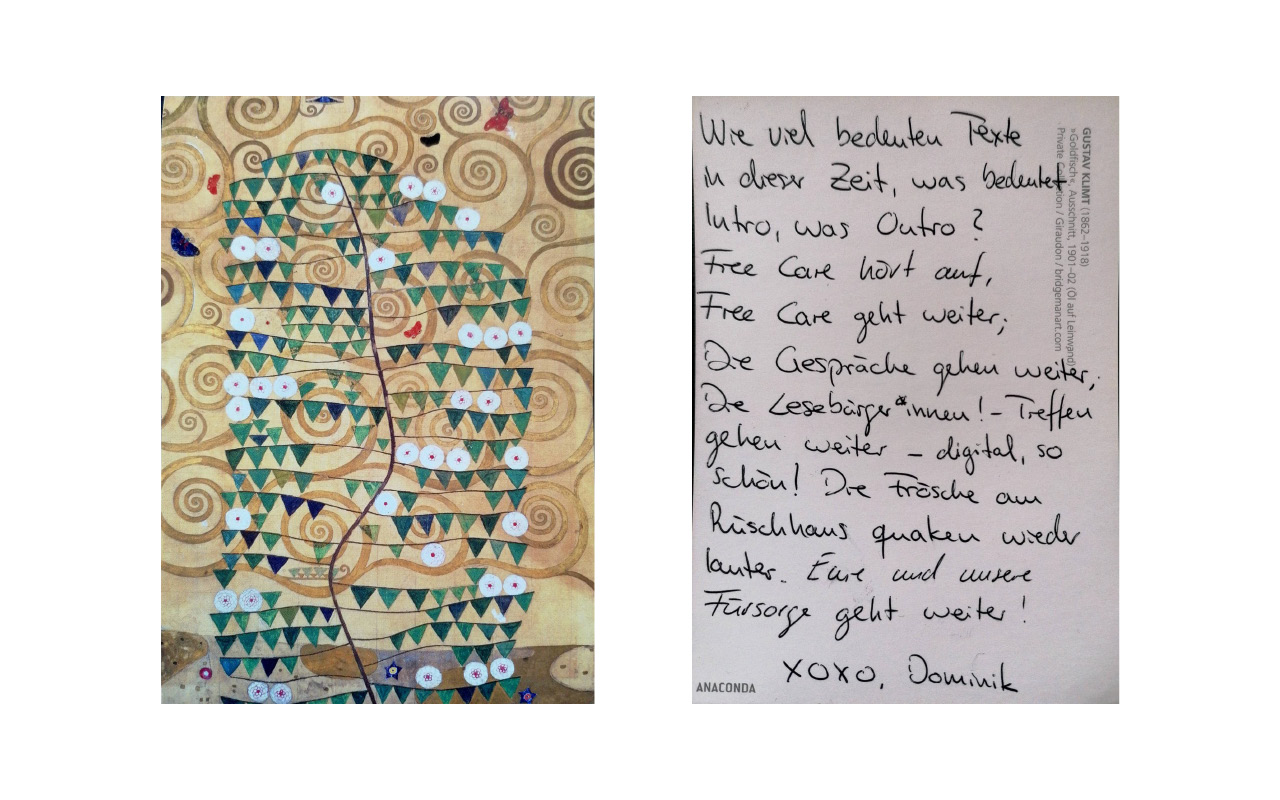 Wie viel bedeuten Texte
in dieser Zeit, was bedeutet
Intro, was Outro?
Free Care hört auf,
Free Care geht weiter;
Die Gespräche gehen weiter;
Die Lesebürger*innen!-Treffen
gehen weiter – digital, so
schön! Die Frösche am
Rüschhaus quaken wieder
lauter. Eure und unsere
Fürsorge geht weiter!
XOXO, Dominik
GUSTAV KLIMT (1862–1918)
»Goldfisch«, Ausschnitt, 1901–02 (Öl auf Leinwand)
Private / Giraudon / bridgemanart.com
ANACONDA